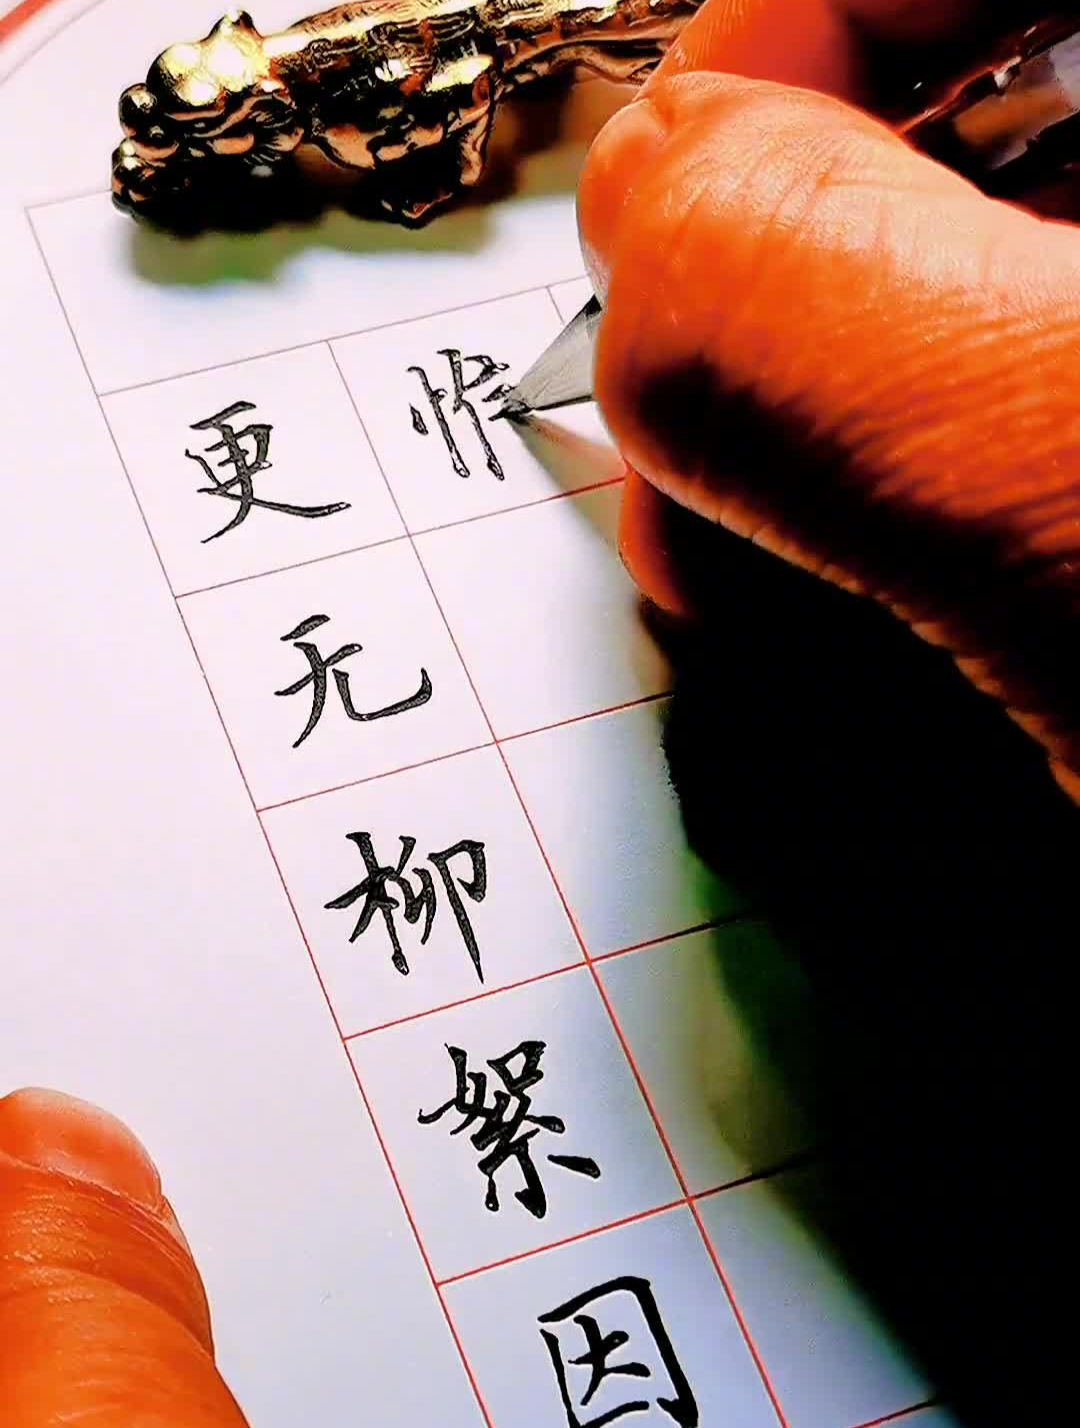 更无柳絮因